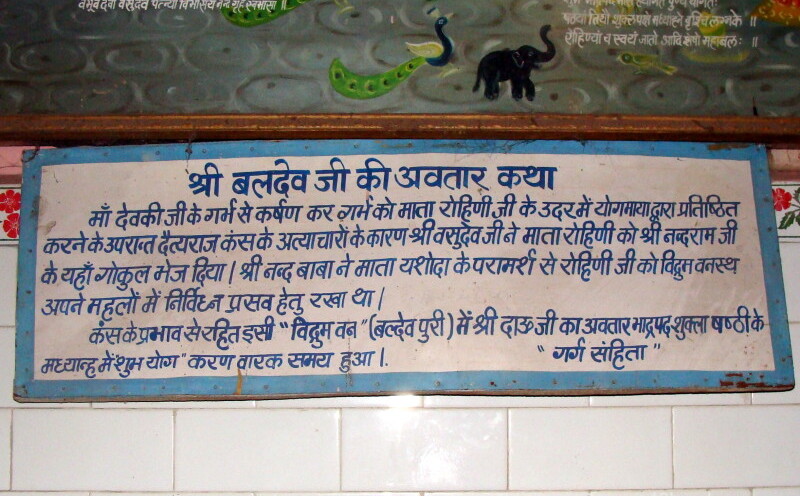 पतयां तियौ शुक्लपक्षे मध्याह्ने वृश्चिके लग्नके ॥
रोहिण्यां च स्वयं जातो आदि शेषो महाबलः ॥
श्री बलदेव जी की अवतार कथा
माँ देवकी जी के गर्भ से कर्षण कर गर्भ को माता रोहिणी जी के उदर में योगमाया द्वारा प्रतिष्ठित
करने के उपरान्त दैत्यराज कंस के अत्याचारों के कारण श्री वसुदेव जी ने माता रोहिणी को श्री नन्दराम जी
के यहाँ गोकुल भेज दिया। श्री नन्द बाबा ने माता यशोदा के परामर्श से रोहिणी जी को विद्रुम वनस्थ
अपने महलों में निर्विघ्न प्रसव हेतु रखा था।
कंस के प्रभाव से रहित इसी "विद्रुम वन" (बल्देव पुरी) में श्री दाऊ जी का अवतार भाद्रपद शुक्ला षष्ठी के
मध्यान्ह में शुभ योग" करण वारक समय हुआ।. "गर्ग संहिता"